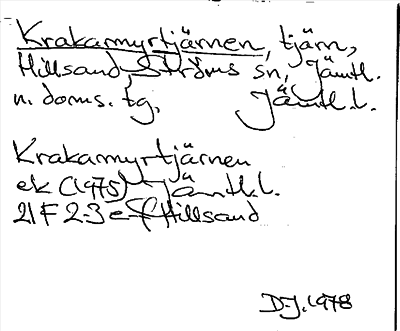 Krakamyrtjärnen, tjärn,
Hillsand, Ströms sn, Jämtl.
n. doms. tg, Jämtl.l.
Krakamyrtjärnen
ek (1975) Jämtl.l.
21F 2-3 e-f Hillsand
D-J. 1978